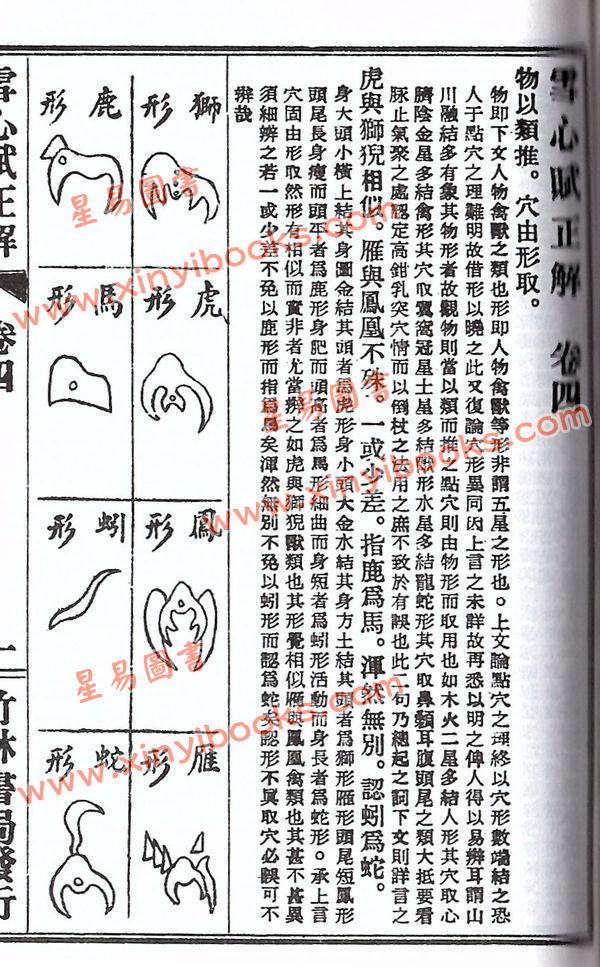 雪心賦正解 卷四
物以類推。穴由形取。
物即下文人物禽獸之類也形即人物禽獸等形非謂五星之形也。上文論點穴之理終以穴形數端結之恐
人于點穴之理難明故借形以曉之此又復論穴形異同因上言之未詳故再悉以明之俾人得以易辨耳謂山
川融結多有象其物形者故觀物則當以類而推之點穴則由物形而取用也如木火二星多結人形其穴取心
臍陰金星多結禽形其穴取翼窩冠星土星多結獸形水星多結龍蛇形其穴取鼻顙耳腹頭尾之類大抵要看
脉止氣聚之處認定高鉗乳突穴情而以倒杖之法用之庶不致於有誤也此二句乃總起之詞下文則詳言之
虎與獅猊相似。雁與鳳凰不殊。一或少差。指鹿爲馬。渾然無別。認蚓爲蛇。
身大頭小橫上結其身圓金結其頭者爲虎形身小頭大金水結其身方土結其頭者爲獅形雁形頭尾短鳳形
頭尾長身瘦而頭平者爲鹿形身肥而頭高者爲馬形細曲而身短者爲蚓形活動而身長者爲蛇形。承上言
穴固由形取然形有相似而實非者尤當辨之如虎與獅猊獸類也其形覺相似雁與鳳凰禽類也其甚不甚異
須細辨之若一或少差不免以鹿形而指爲馬矣渾然無別不免以蚓形而認爲蛇矣認形不眞取穴必誤可不
辨哉
獅形
虎形
鳳形
雁形
鹿形
馬形
蚓形
蛇形
雪心賦正解 卷四 一 竹林書局發行
星易圖書
www.xinyibooks.com
星易圖書
www.xinyibooks.com
星易圖書
www.xinyibooks.com
星易圖書
www.xinyibooks.com